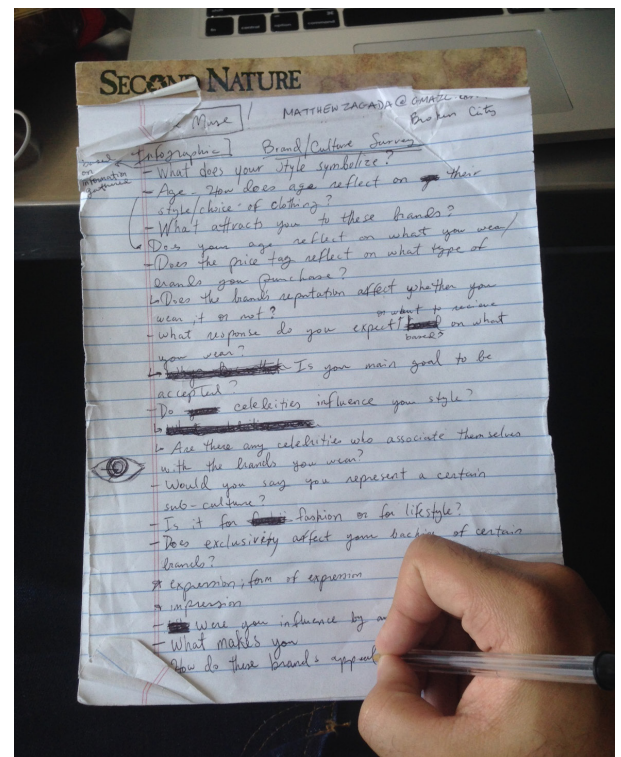 SECOND NATURE
Muse
MATTHEWZAGADA@GMAIL.COM
Broken City
based on information gathered
Infographic]
Brand/Culture Survey
- What does your style symbolize?
- Age. How does age reflect on their
style/choice of clothing?
- What attracts you to these brands?
Does your age reflect on what you wear/
- Does the price tag reflect on what type of
brands you purchase?
↳ Does the brands reputation affect whether you
wear it or not?
or want to recieve
- what response do you expect/ on what
based
you wear?
↳ Is you main goal to be
accepted?
- Do celebrities influence you style?
↳
↳ Are there any celebrities who associate themselves
with the brands you wear?
- Would you say you represent a certain
sub-culture?
- Is it for fashion or for lifestyle?
- Does exclusivity affect your backing of certain
brands?
* expression; form of expression
* impression
- Were you influence by
- What makes you
How do these brands appeal